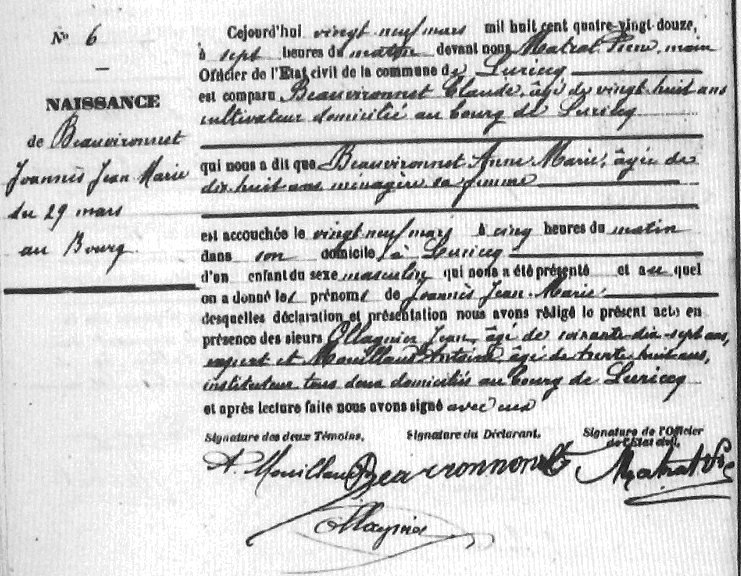 N° 6
—
NAISSANCE
de Beauvironnet
Joannès Jean Marie
du 29 mars
au Bourg
Cejourd'hui vingt neuf mars mil huit cent quatre-vingt-douze,
à sept heures du matin devant nous Matrat Pierre, maire
Officier de l'Etat civil de la commune de Luricq
est comparu Beauvironnet Claude, âgé de vingt-huit ans
cultivateur domicilié au bourg de Luricq
qui nous a dit que Beauvironnet Anne Marie, âgée de
dix huit ans ménagère sa femme
est accouchée le vingt neuf mars à cinq heures du matin
dans son domicile à Luricq
d'un enfant du sexe masculin qui nous a été présenté et auquel
on a donné les prénoms de Joannès Jean-Marie
desquelles déclaration et présentation nous avons rédigé le présent acte en
présence des sieurs Ollagnier Jean, âgé de soixante-dix-sept ans,
expert et Mouillaud Antoine âgé de trente huit ans,
instituteur tous deux domiciliés au bourg de Luricq
et après lecture faite nous avons signé avec eux
Signature des deux Témoins, Signature du Déclarant, Signature de l'Officier
de l'Etat civil,
A. Mouillaud Beauvironnet Matrat Pre
Ollagnier